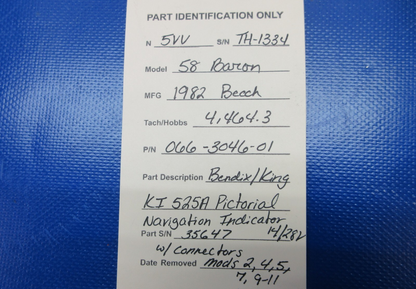 PART IDENTIFICATION ONLY
N 5VV S/N TH-1334
Model 58 Baron
MFG 1982 Beech
Tach/Hobbs 4,464.3
P/N 066-3046-01
Part Description Bendix/King
KI 525A Pictorial
Navigation Indicator
Part S/N 35647 14/28V
w/ connectors
Date Removed mods 2, 4, 5,
7, 9-11